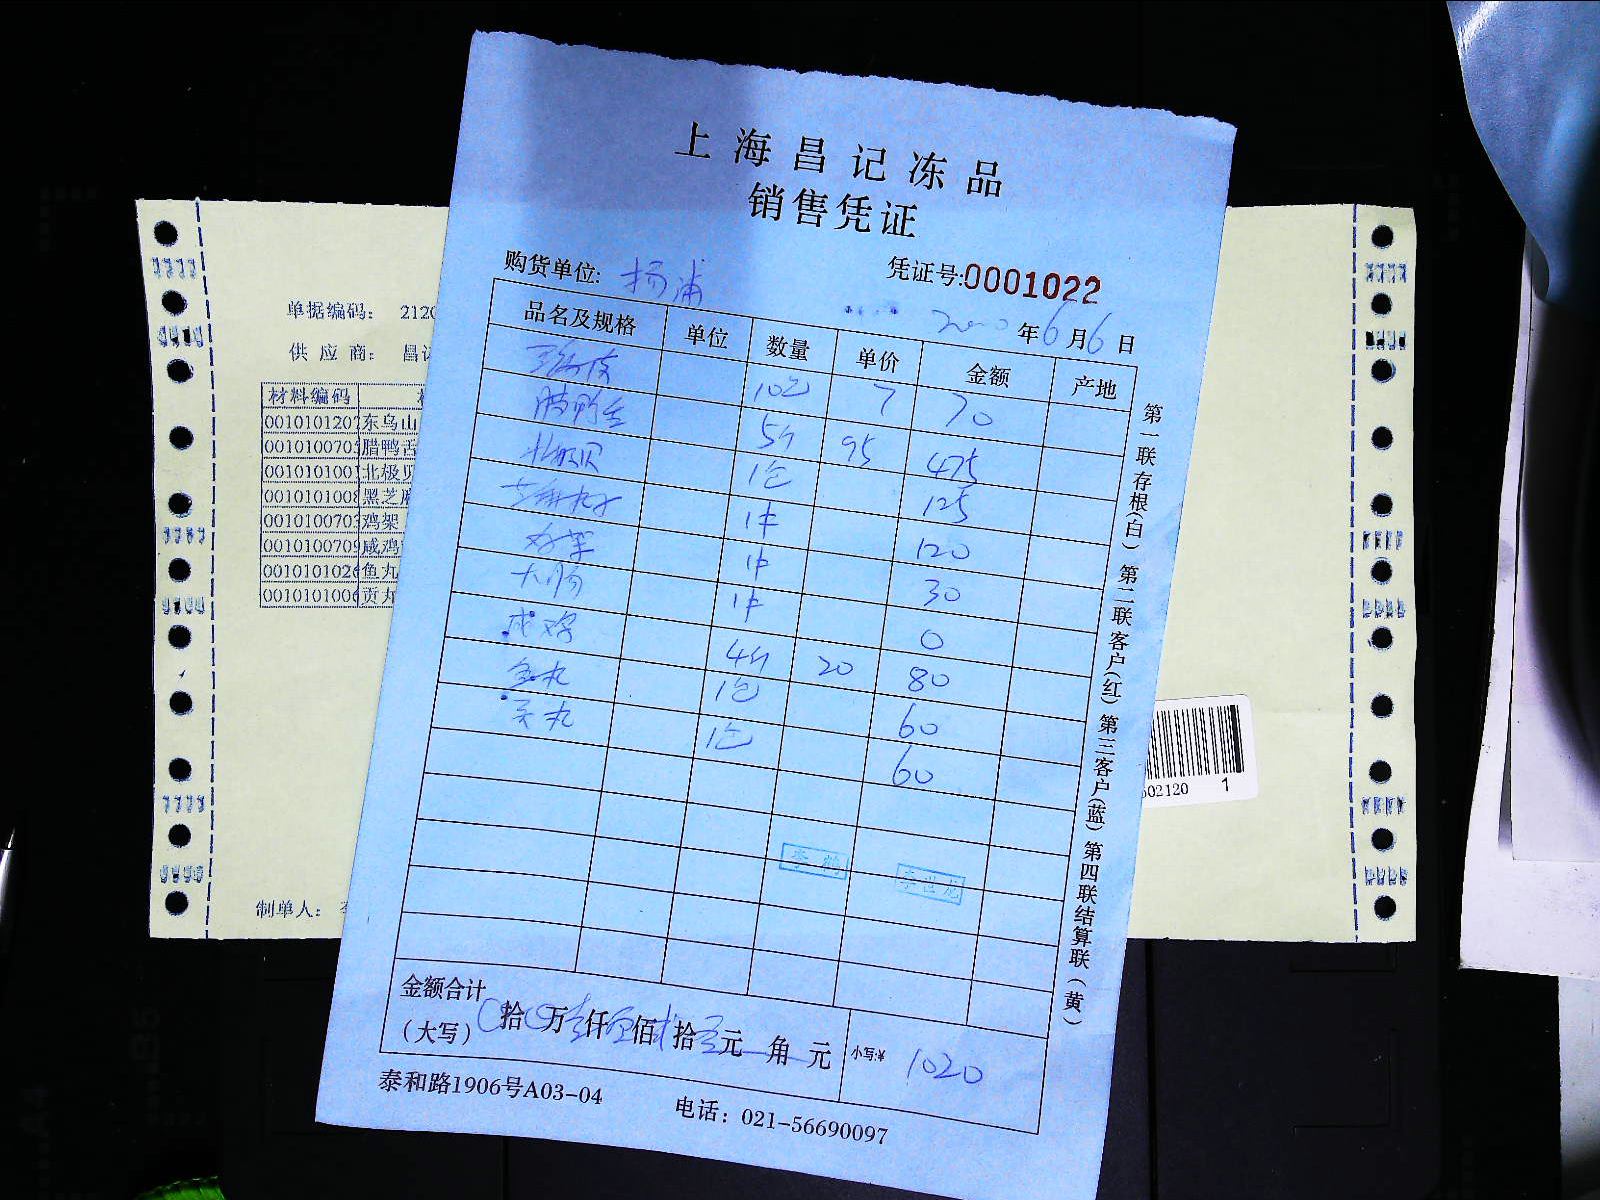 上海昌记冻品
销售凭证
购货单位: 杨浦 凭证号:0001022
年6月6日
品名及规格 单位 数量 单价 金额 产地
10包 7 70
腊鸭舌 5斤 95 475
北极贝 1包 125
1件 120
鸡架 1件 30
大肠 1件 0
咸鸡 4斤 20 80
鱼丸 1包 60
贡丸 1包 60
金额合计
(大写) 拾 万 仟 佰 拾 元 角 元 小写:¥ 1020
泰和路1906号A03-04 电话: 021-56690097
第一联存根(白) 第二联客户(红) 第三客户(蓝) 第四联结算联(黄)
李鹤
李进龙
单据编码: 2120
供应商: 昌
材料编码
0010101207 东乌山
001010070 腊鸭舌
001010100 北极贝
0010101008 黑芝麻
001010070 鸡架
0010100709 咸鸡
001010102 鱼丸
001010100 贡丸
制单人:
602120 1